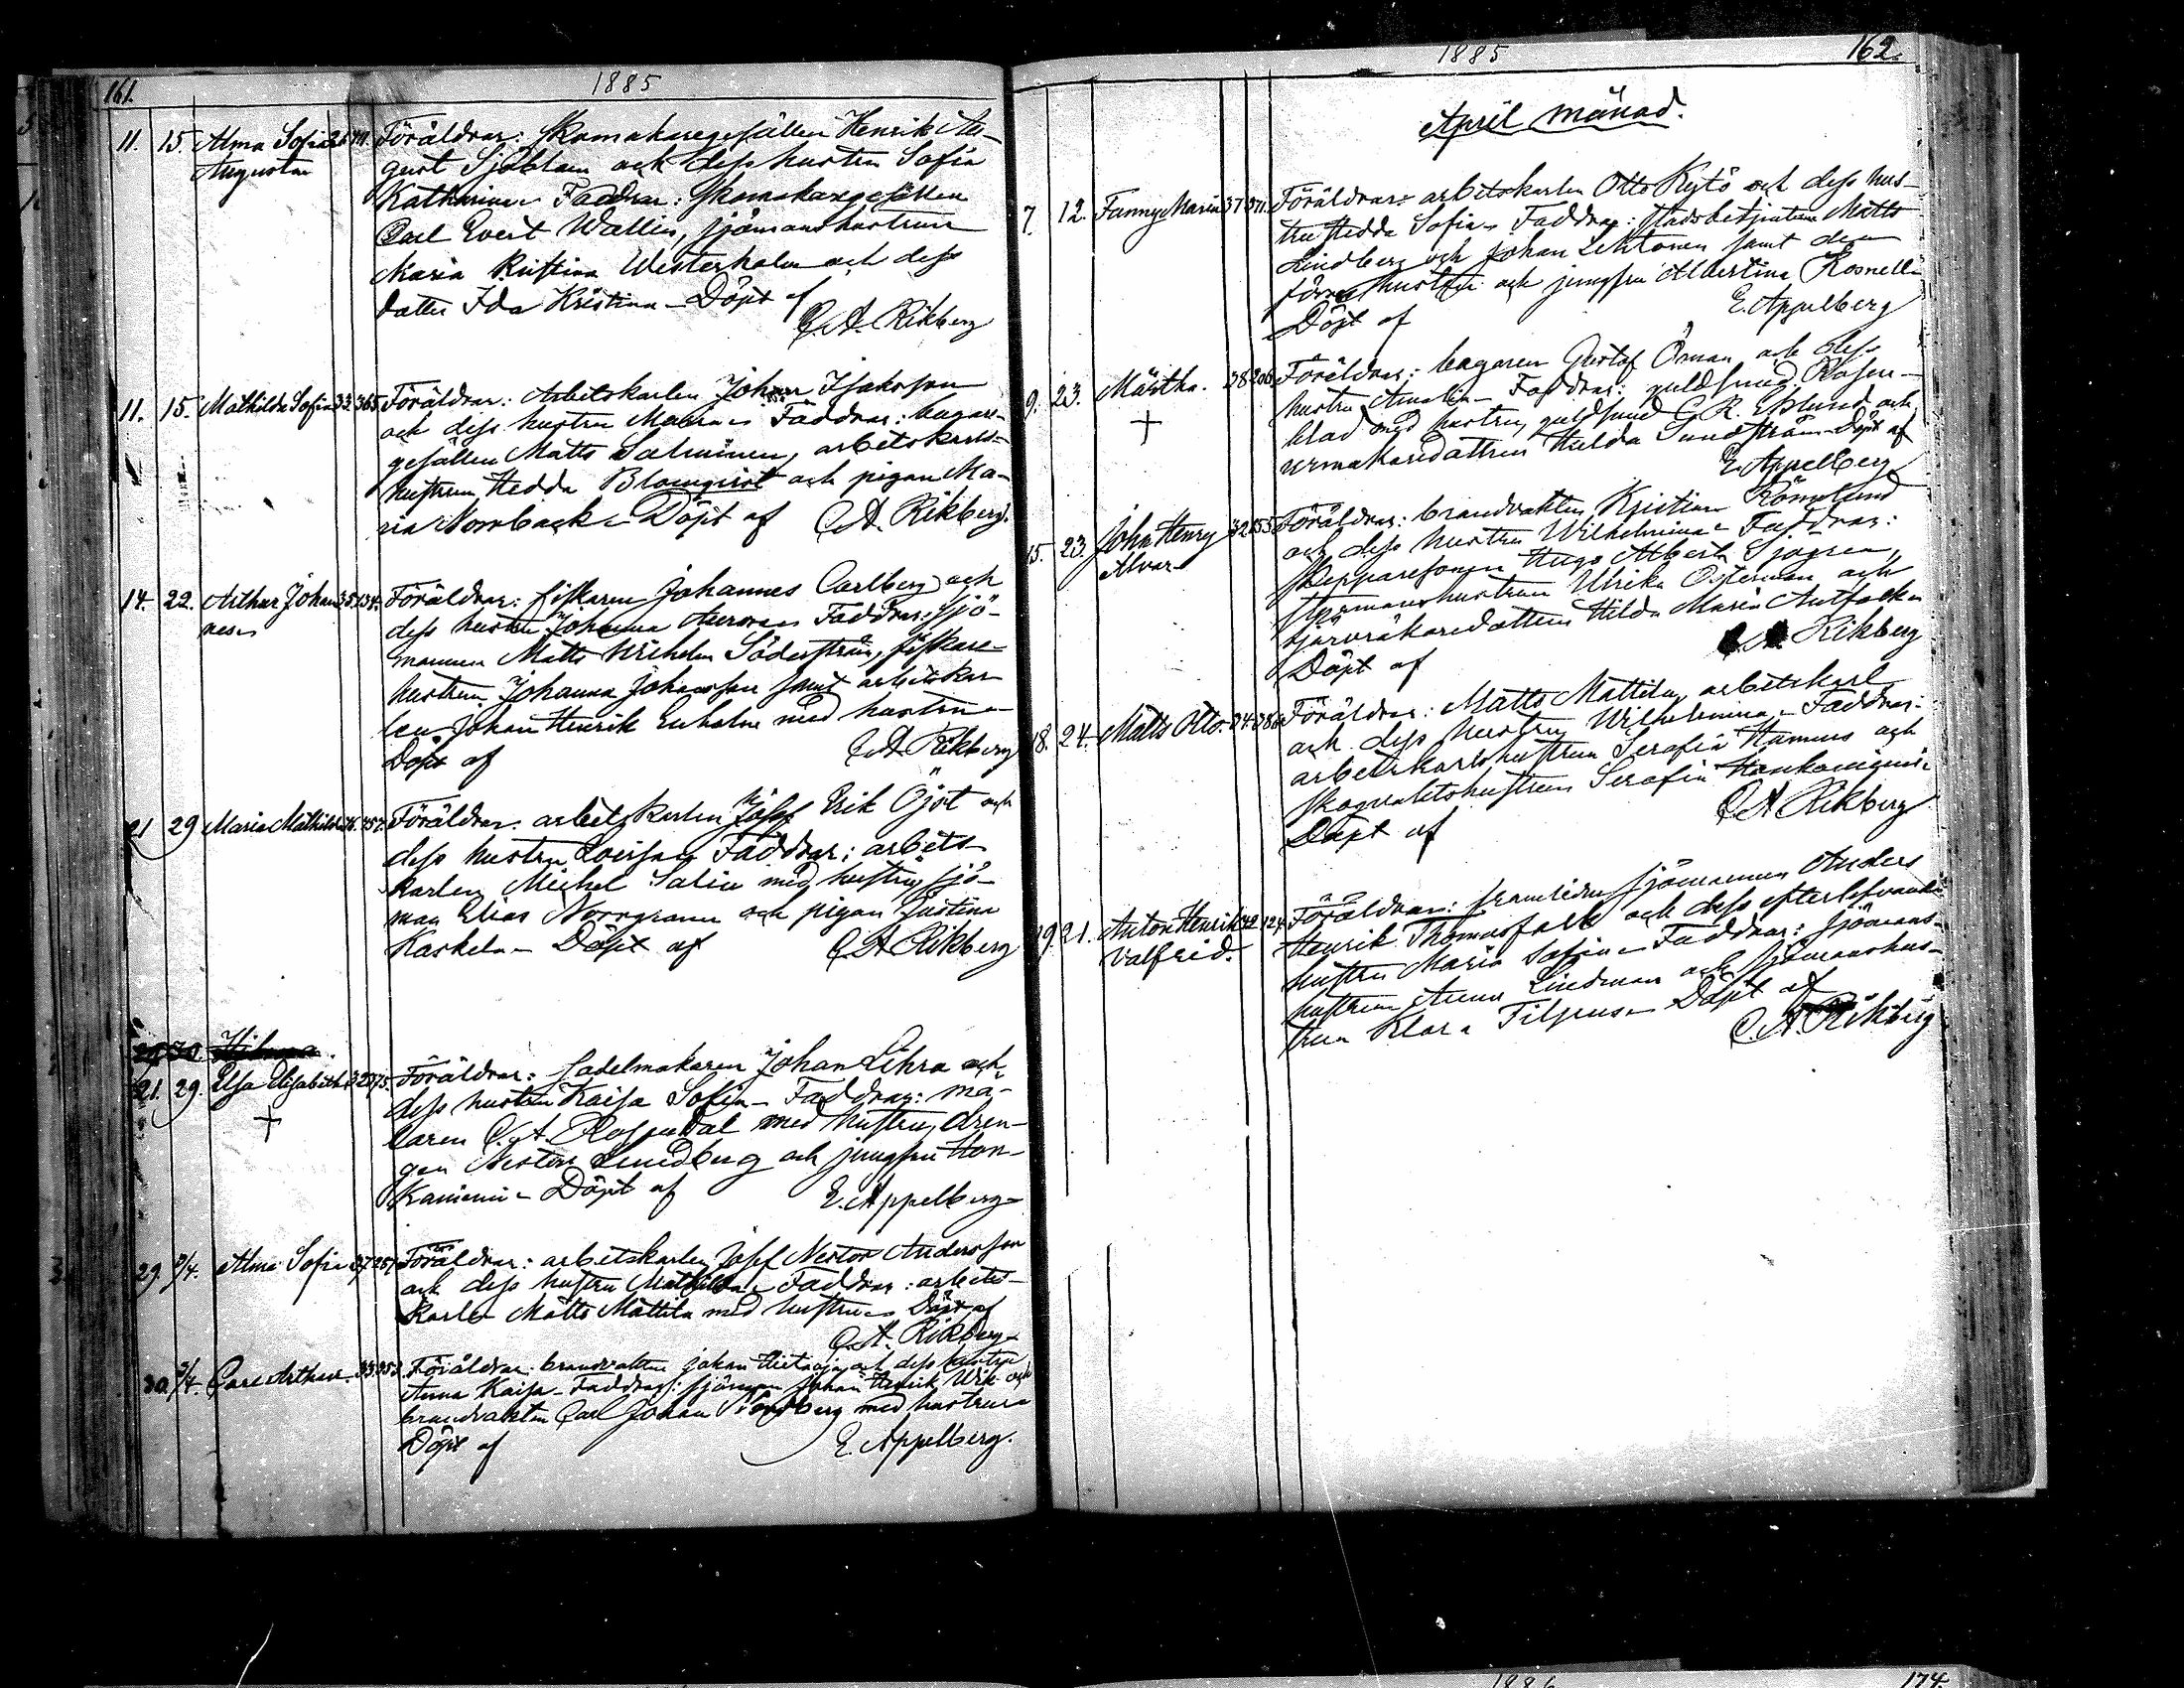 161.
1885
11. 15. Alma Sofia 26 Föräldrar: Skomakaregesällen Henrik Au-
Augusta gust Sjöblom och dess hustru Sofia
Katharina Faddrar: Skomakaregesällen
Carl Evert Wallin, sjömanshustrun
Maria Kristina Westerholm och dess
dotter Ida Kristina – Döpt af
C. A. Rikberg
11. 15. Mathilda Sofia 33. 365. Föräldrar: Arbetskarlen Johan Isaksson
och dess hustru Maria – Faddrar: bagare-
gesällen Matts Salminen, arbetskarls-
hustrun Hedda Blomqvist och pigan Ma-
ria Norrback – Döpt af C. A. Rikberg.
14. 22. Arthur Johan- 35. 134. Föräldrar: fiskaren Johannes Carlberg och
nes dess hustru Johanna Aurora – Faddrar: sjö-
mannen Matts Wilhelm Söderström, fiskare-
hustrun Johanna Johansson samt arbetskar-
len Johan Henrik Enholm med hustru –
Döpt af C. A. Rikberg
21 29 Maria Mathilda 36. 257. Föräldrar: arbetskarlen Josef Erik Öjst och
dess hustru Lovisa – Faddrar: arbets-
karlen Michel Salin med hustru, sjö-
man Elias Norrgrann och pigan Justina
Kaskela – Döpt af C. A. Rikberg
29 30. Hilma
21. 29. Elsa Elisabeth 32 275. Föräldrar: Sadelmakaren Johan Lihra och
dess hustru Kaisa Sofia – Faddrar: må-
laren C. A. Rosendal med hustru, dren-
gen Nestor Lindberg och jungfru Hon-
kaniemi – Döpt af E. Appelberg –
29 5/4. Alma Sofia 37 257. Föräldrar: arbetskarlen Josef Nestor Andersson
och dess hustru Mathilda – Faddrar: arbets-
karlen Matts Mattila med hustru – Döpt af
C. A. Rikberg –
30. 5/4. Carl Arthur. 33. 353. Föräldrar: brandvakten Johan Hietaoja och dess hustru
Anna Kaisa – Faddrar: sjöman Johan Henrik Wik och
brandvakten Carl Johan med hustru
Döpt af E. Appelberg.
1885
162.
April månad.
7. 12. Fanny Maria 37 371. Föräldrar: arbetskarlen Otto Kytö och dess hus-
tru Hedda Sofia – Faddrar: stadsbetjenten Matts
Lindberg och Johan Lehtonen samt den
förres hustru och jungfru Albertina Rosnell –
Döpt af E. Appelberg
9. 23. Märtha. 38 206 Föräldrar: bagaren Gustaf Öman och dess
hustru Amalia – Faddrar: guldsmed Rosen-
blad med hustru, guldsmed C. R. Eklund och
urmakaredottren Hulda Sundström – Döpt af
E. Appelberg
15. 23. John Henry 32 Föräldrar: brandvakten Kristian Rönnlund
Alvar och dess hustru Wilhelmina – Faddrar:
Skepparesonen Hugo Albert Sjögren,
hustrun Ulrika Österman och
dottren Hilda Maria Antfolk –
Döpt af C. A. Rikberg
18. 24. Matts Otto. 34. 286 Föräldrar: Matts Mattila, arbetskarl
och dess hustru Wilhelmina – Faddrar:
arbetskarlshustrun Serafia Hannus och
hustrun Serafia Honkaniemi –
Döpt af C. A. Rikberg
19. 21. Anton Henrik 42. 124. Föräldrar: framlidne sjömannen Anders
Valfrid. Henrik Thomasfolk och dess efterlefvande
hustru Maria Sofia – Faddrar: sjömans-
hustrun Anna Lindman och sjömanshus-
trun Klara Filpus – Döpt af
C. A. Rikberg
1886
174.